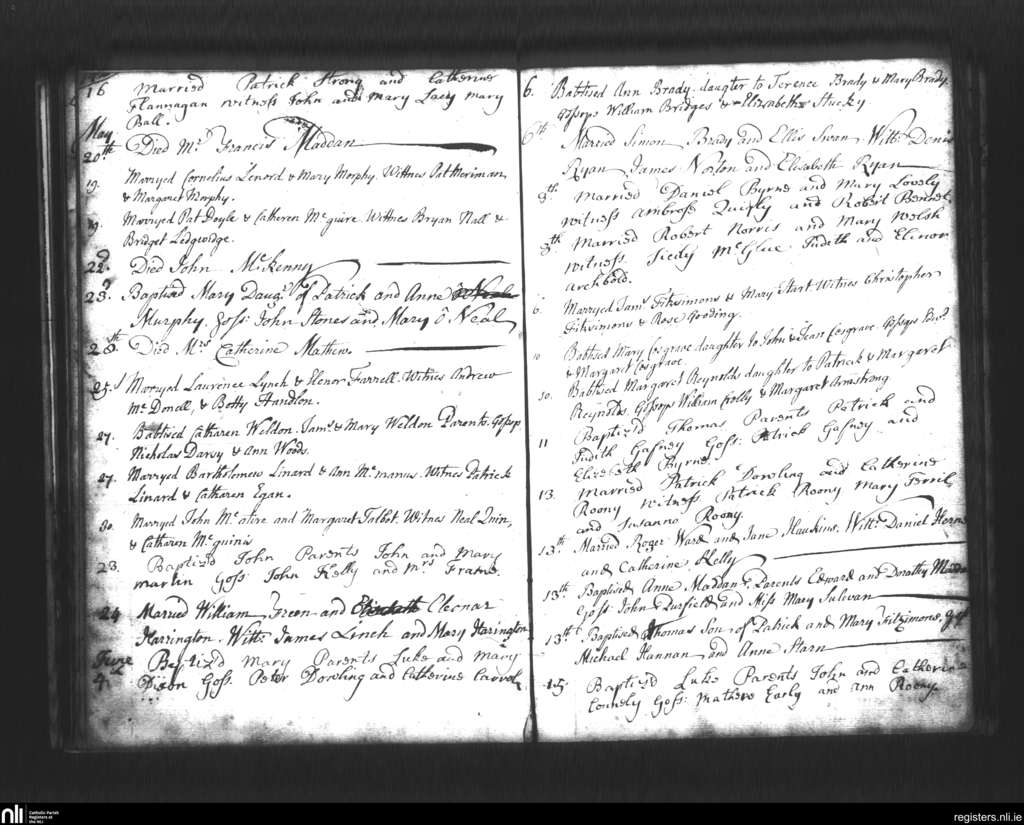 16 Married Patrick Strong and Catherine
Flannagan witness John and Mary Lacy Mary
Ball.
May
20th Died Mr. Francis Maddan
19. Marryed Cornelius Lenord & Mary Morphy. Wittnes Pat Heriman
& Margaret Morphy.
19. Marryed Pat Doyle & Catheren McGuire. Wittnes Bryan Nall &
Bridget Ledgwidge.
22d. Died John McKenny
23d. Baptised Mary Daugr. of Patrick and Anne
Murphy. Goss: John Stones and Mary O'Neal
26th Died Mrs Catherine Mathews
25. Marryed Laurence Lynch & Elenor Farrell. Witnes Andrew
McDonell, & Betty Handlon.
27. Babtised Catharen Weldon. Jams. & Mary Weldon Parents. Gossps
Nicholas Darsy & Ann Woods.
27. Marryed Bartholomew Linard & Ann McManus. Witnes Patrick
Linard & Catharen Egan.
30. Marryed John and Margaret Talbot. Witnes Neal Quin,
& Catharen McGuinis
23. Baptiz'd John Parents John and Mary
Martin Goss: John Kelly and Mrs Frame.
24 Married William Green and Eleonar
Harrington. Witts James Linch and Mary Harington
June Baptiz'd Mary Parents Luke and Mary
4th Dixon Goss. Peter Dowling and Catherine Carrol
6. Babtised Ann Brady daughter to Terence Brady & Mary Brady.
Gossops William Bridges & Elizabeth Stucky
6th Maried Simon Brady and Ellis Swan Witts. Denis
Ryan James Norton and Elisabeth Ryan
8th Married Daniel Byrne and Mary Lovely
witness Ambrose Quigly and Robert Bennet
8th Married Robert Norris and Mary Welsh
witness. McGlue. Judith and Elinor
Archbold.
6. Marryed Jams. Fitsimons & Mary Start Witnes Christopher
Fitsimons & Rose Gooding.
10 Babtised Mary Cosgrave daughter to John & Jean Cosgrave. Gossops
& Margaret Cosgrave
10. Babtised Margaret Reynolds daughter to Patrick & Margaret
Reynolds. Gossops William Crolly & Margaret Armstrong
11 Baptiz'd Thomas Parents Patrick and
Judith Gafney Goss: Patrick Gafney and
Elizabeth Byrne.
13. Married Patrick Dowling and Catherine
Roony Witness Patrick Roony Mary Ferril
and Susanna Roony
13th Married Roger Ward and Jane Hawkins. Witts. Daniel
and Catherine Kelly
13th Baptised Anne Maddan. Parents Edward and Dorothy
Goss: John Durfield and Miss Mary Sulivan
13th Baptised Thomas Son of Patrick and Mary Fitzimons.
Michael Hannan and Anne Starn
15. Baptiz'd Luke Parents John and Catherine
Connely Goss: Mathew Early and Ann Roony.
nli
Catholic Parish
Registers at
the NLI
registers.nli.ie